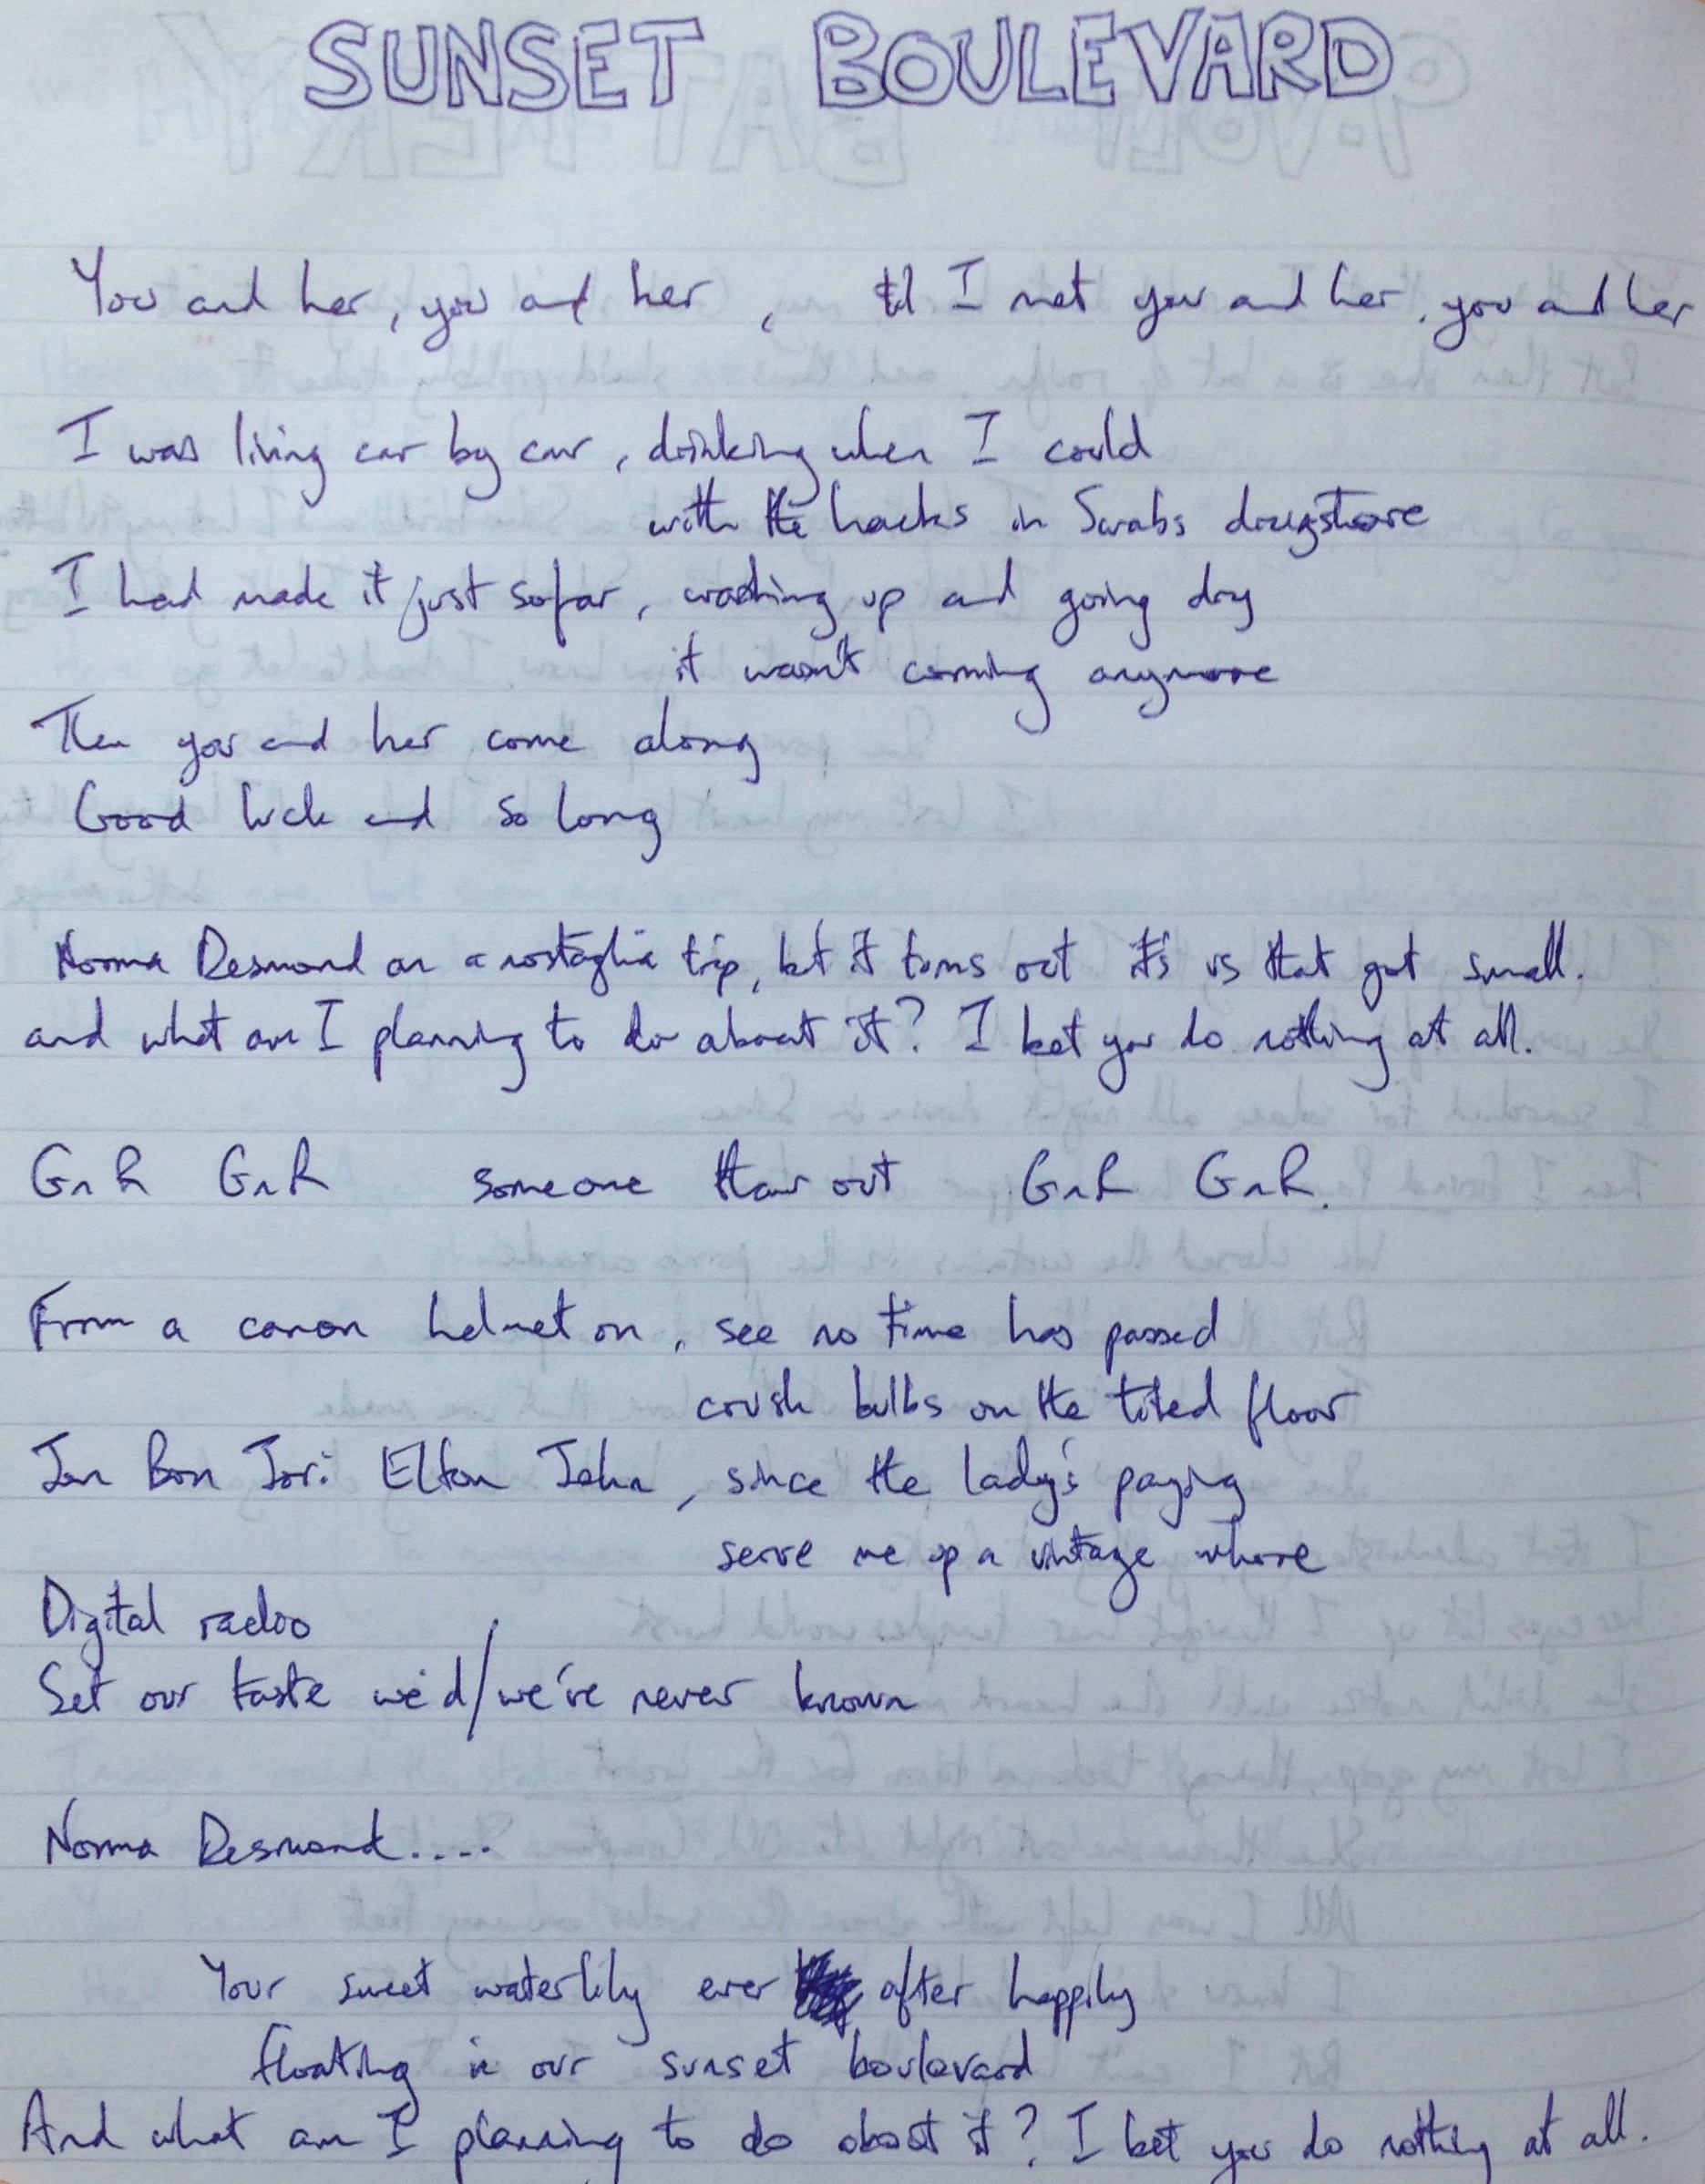 SUNSET BOULEVARD
You and her, you and her, til I met you and her, you and her
I was living car by car, drinking when I could
with the hacks in Swabs drugstore
I had made it just so far, washing up and going dry
it wasn't coming anymore
Then you and her come along
Good luck and so long
Norma Desmond on a nostaglia trip, but it turns out it's us that got small.
and what am I planning to do about it? I bet you do nothing at all.
GnR GnR someone thaw out GnR GnR.
From a canon helmet on, see no time has passed
crush bulbs on the tiled floor
Jon Bon Jovi Elton John, since the lady's paying
serve me up a vintage whore
Digital radio
Set our taste we'd/we've never known
Norma Desmond....
Your sweet waterlily ever after happily
floating in our sunset boulevard
And what am I planning to do about it? I bet you do nothing at all.